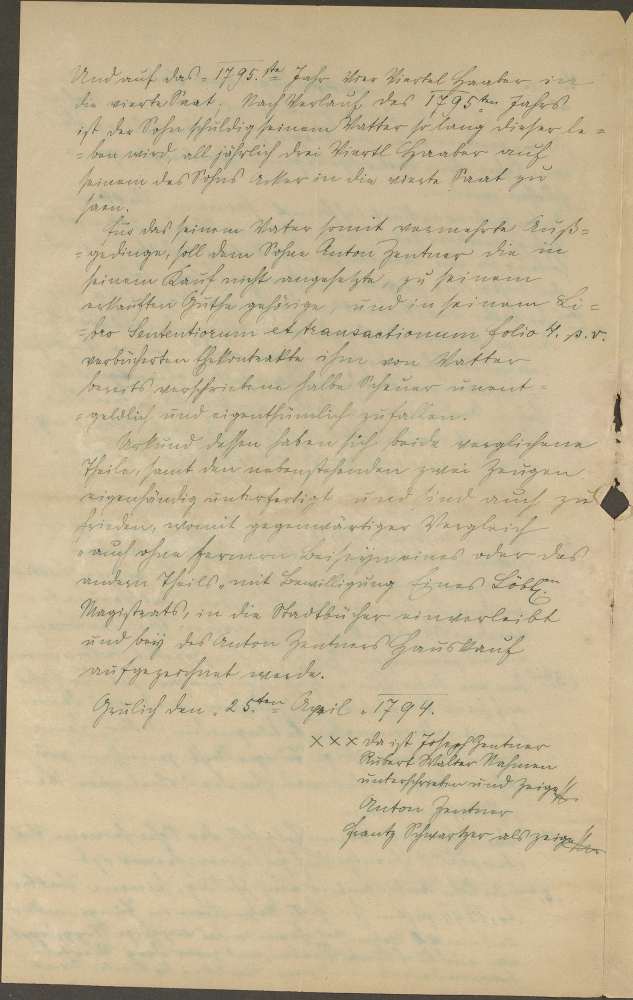 Und auf das 1795.ste Jahr vier Viertel Haaber in
die vierte Saat. Nach Verlauf des 1795ten Jahrs
ist der Sohn schuldig seinem Vatter so lang dieser le=
=ben wird, all jährlich drei Viertl Haaber auf
seinem des Sohns Acker in die vierte Saat zu
säen.
Für das seinem Vater somit vermehrte Auß=
=gedinge, soll dem Sohne Anton Zentner die in
seinem Kauf nicht angesetzte, zu seinem
erkauften Guthe gehörige, und in seinem Li=
=bro Sententiorum et transactionum folio 4. p. v.
verbücherten Ehekontrakte ihm von Vatter
bereits verschriebene halbe Scheuer unent=
=geldlich und eigenthümlich zufallen.
Urkund dessen haben sich beide verglichene
Theile, samt den nebenstehenden zwei Zeugen
eigenhändig unterfertigt und sind auch zu
frieden, womit gegenwärtiger Vergleich
auch ohne fernern Beiseyn eines oder des
andern Theils, mit Bewilligung Eines Löbl.en
Magistrats, in die Stadtbücher einverleibt
und bey des Anton Zentners Hauskauf
aufgezeichnet werde.
Grulich den 25.ten April 1794.
××× da ist Joseph Zentner
Walter Nahmen
unterschrieben und Zeige
Anton Zentner
Frantz Schwartzer als Zeige